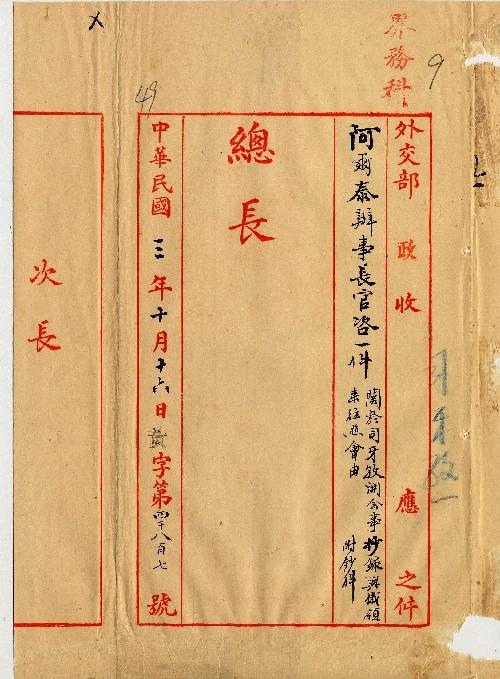 界務科
9
外交部 政 收 應 之件
阿爾泰辦事長官咨一件
關於司牙孜開會事抄錄與俄領
來往照會由
附鈔件
總長
49
中華民國 三 年 十 月 十六 日 字第 四千八百七 號
次長